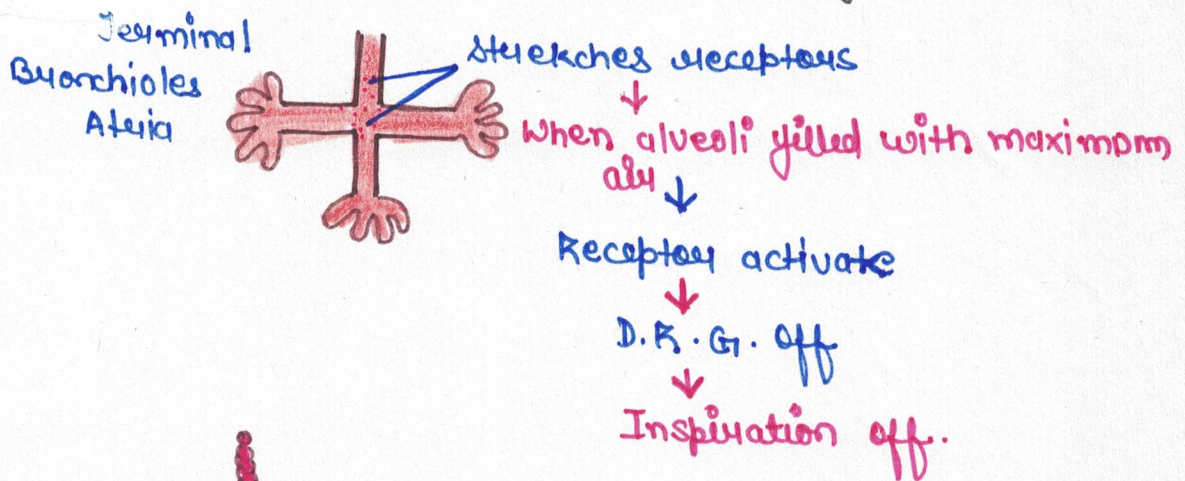 Terminal
Bronchioles
Atria
Stretches receptors
When alveoli filled with maximum
air
Receptor activate
D.R.G. Off
Inspiration off.